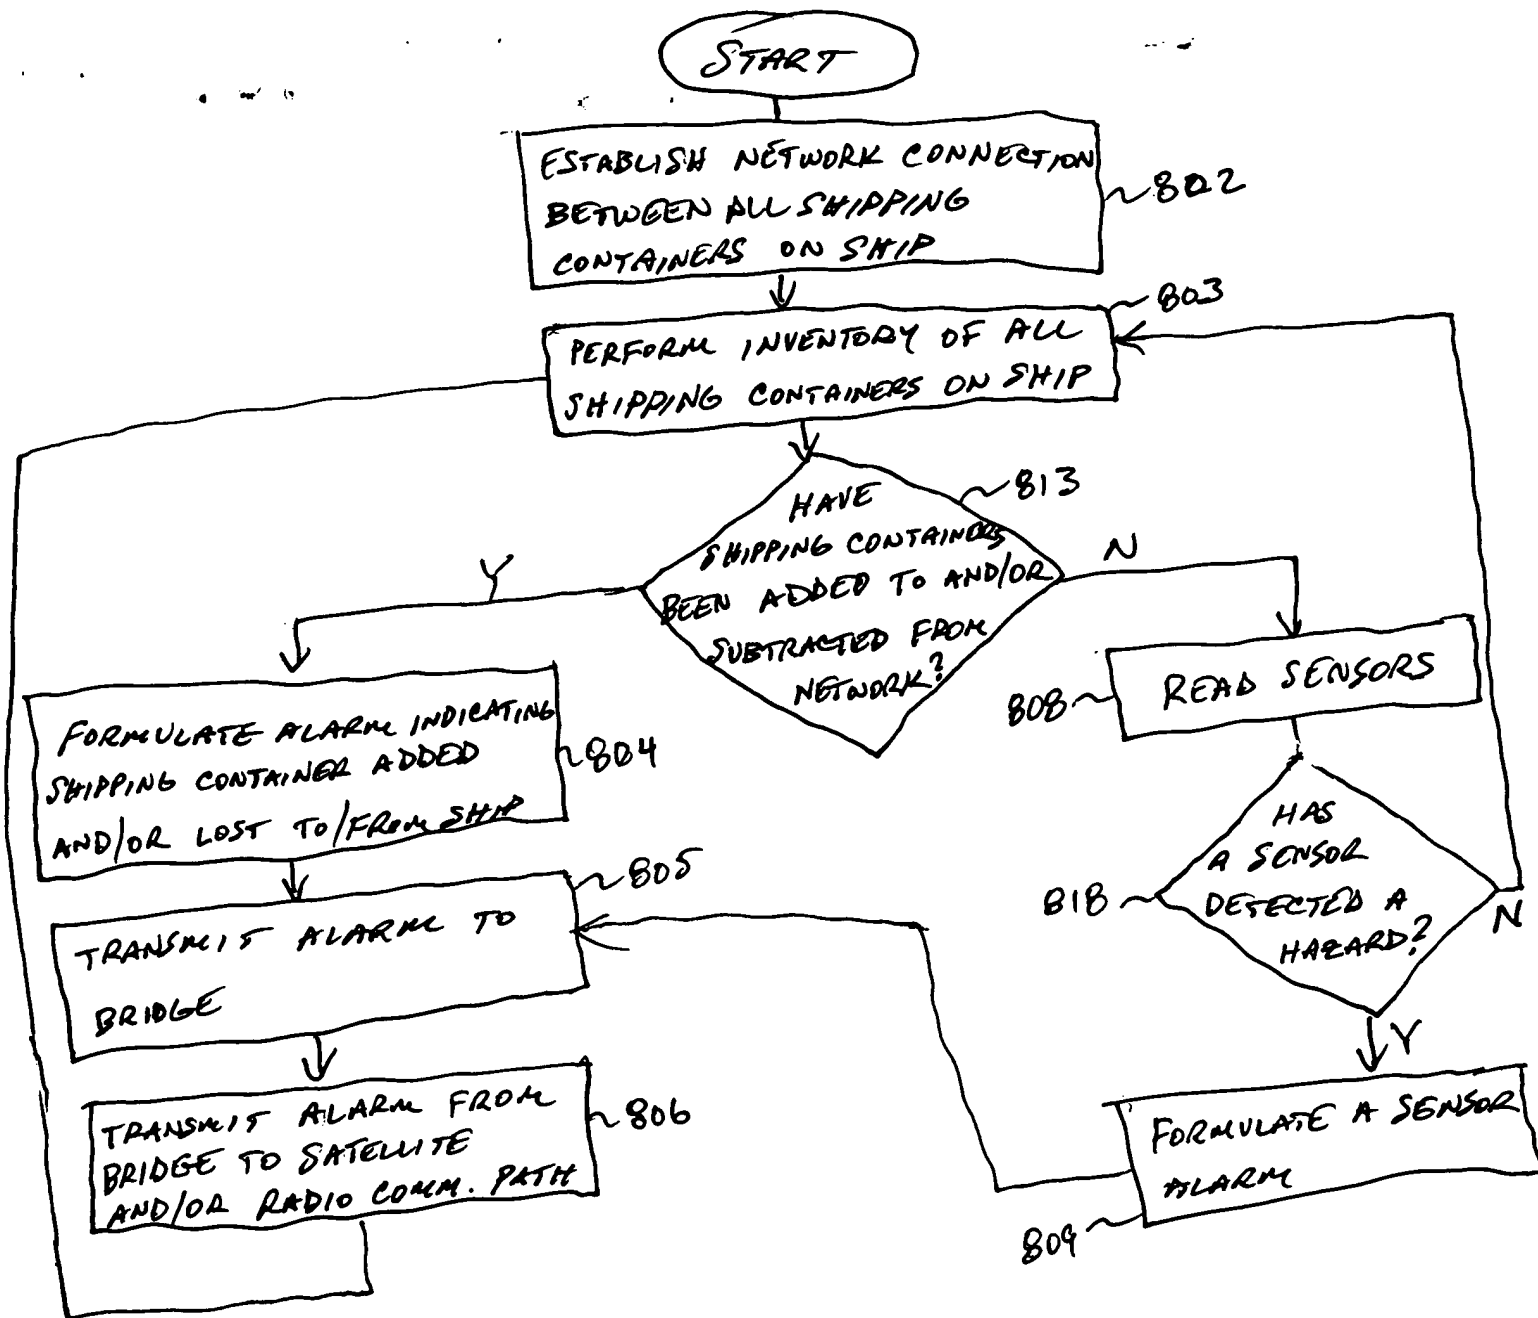 START
ESTABLISH NETWORK CONNECTION
BETWEEN ALL SHIPPING
CONTAINERS ON SHIP
802
PERFORM INVENTORY OF ALL
SHIPPING CONTAINERS ON SHIP
803
HAVE
SHIPPING CONTAINERS
BEEN ADDED TO AND/OR
SUBTRACTED FROM
NETWORK?
813
Y
N
FORMULATE ALARM INDICATING
SHIPPING CONTAINER ADDED
AND/OR LOST TO/FROM SHIP
804
READ SENSORS
808
TRANSMIT ALARM TO
BRIDGE
805
HAS
A SENSOR
DETECTED A
HAZARD?
818
N
Y
TRANSMIT ALARM FROM
BRIDGE TO SATELLITE
AND/OR RADIO COMM. PATH
806
FORMULATE A SENSOR
ALARM
809